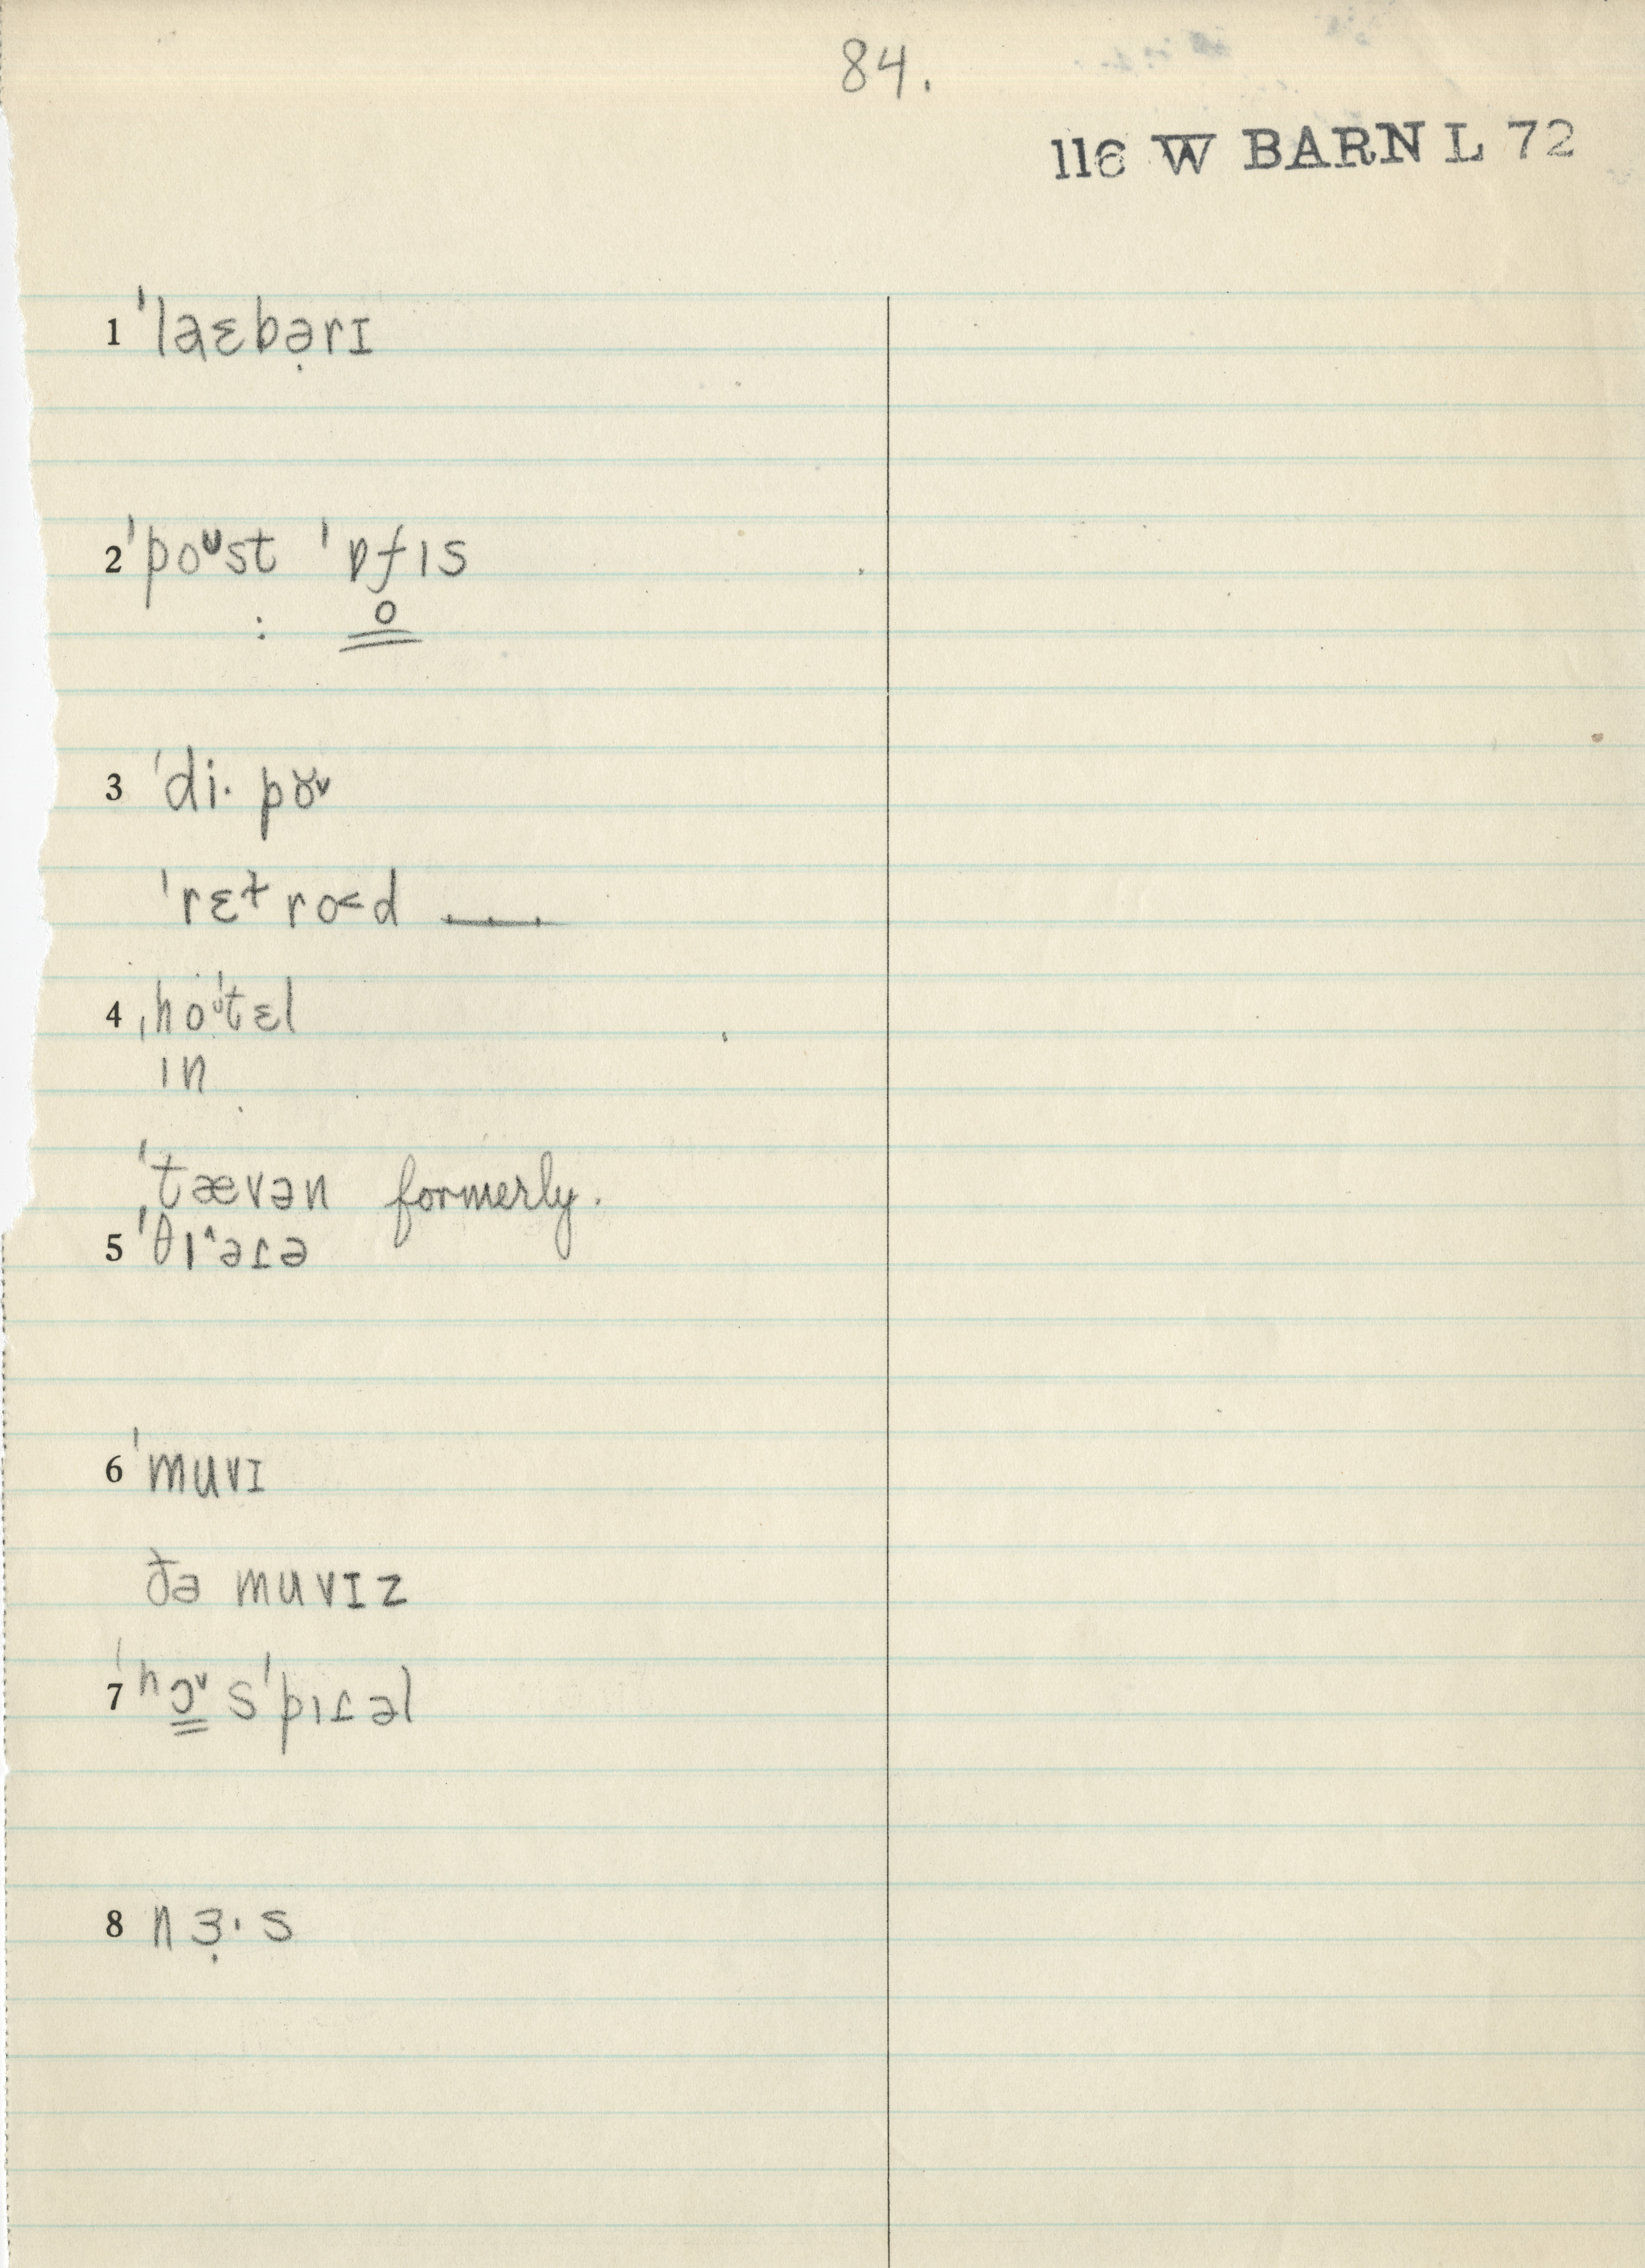 84.
116 W BARN L 72
1 ˈlaɛbə̣rɪ
2 ˈpoᶸst ˈɒfɪs
: o
3 ˈdi· pɤv
ˈrɛɫ ro<d
4 ˌhoᶸˈtɛl
ɪn
ˈtævən formerly.
5 ˈθɪ^əɾə
6 ˈmuvɪ
ðə muvɪz
7 ˈhɔ̳ᵛsˈpɪɾəl
8 nɜ̣·s